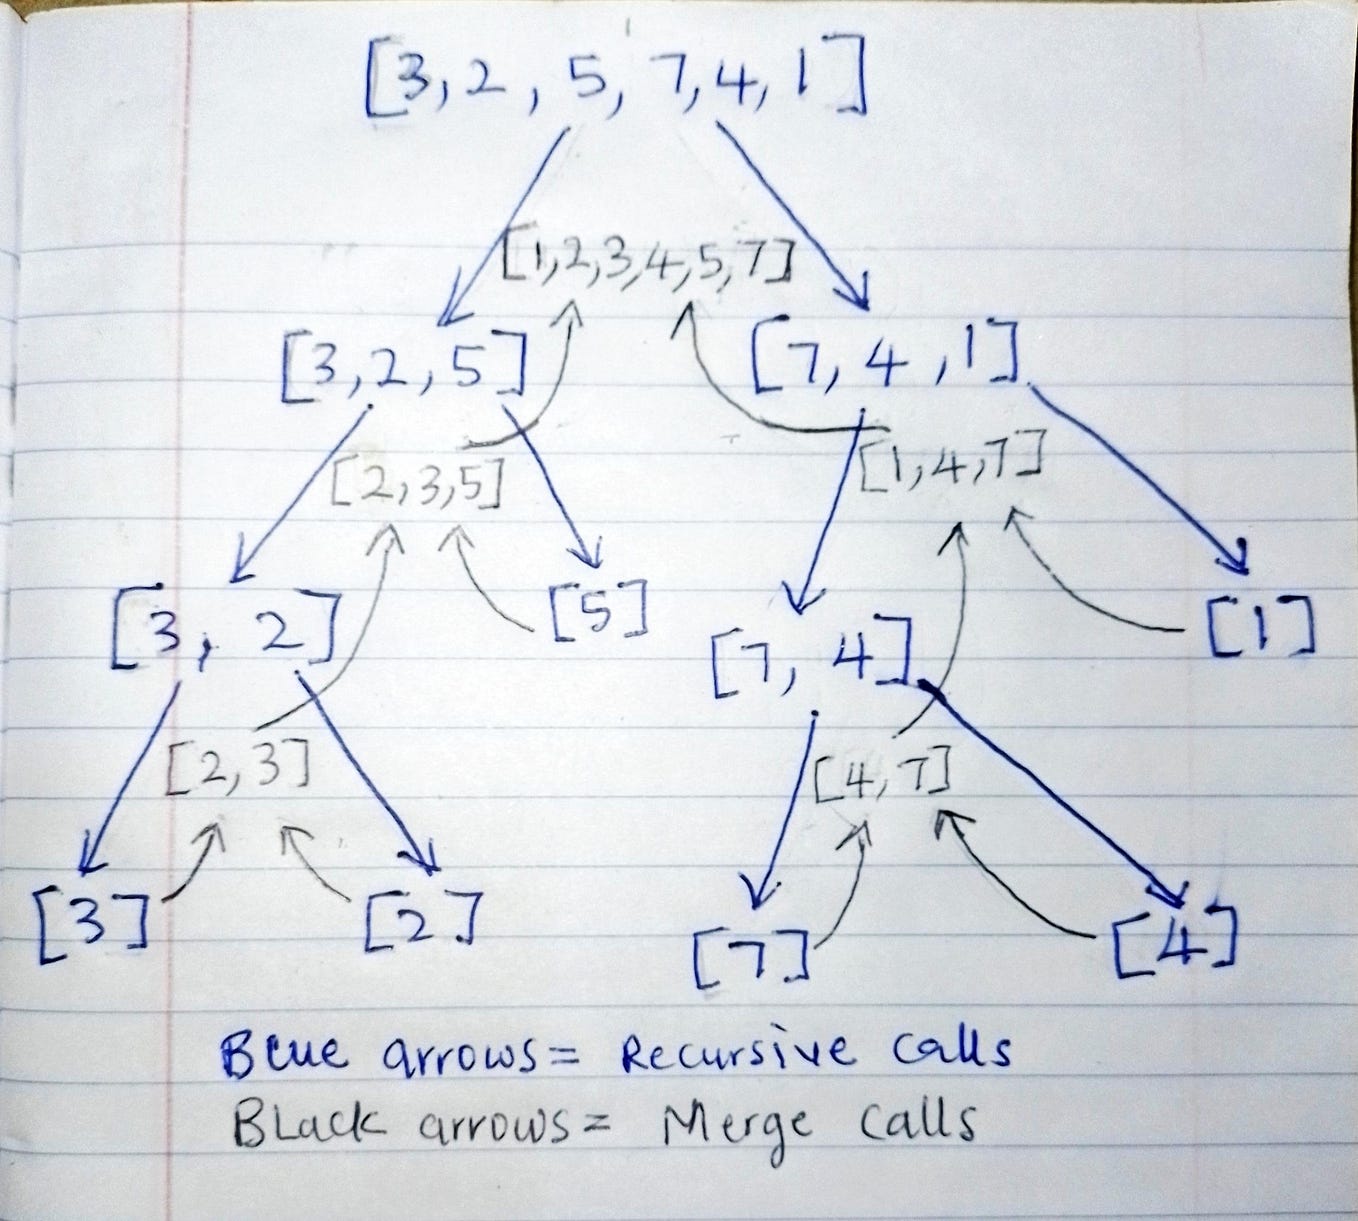 [3,2,5,7,4,1]
[1,2,3,4,5,7]
[3,2,5] [7,4,1]
[2,3,5] [1,4,7]
[3,2] [5] [7,4] [1]
[2,3] [4,7]
[3] [2] [7] [4]
Blue arrows= Recursive calls
Black arrows= Merge calls